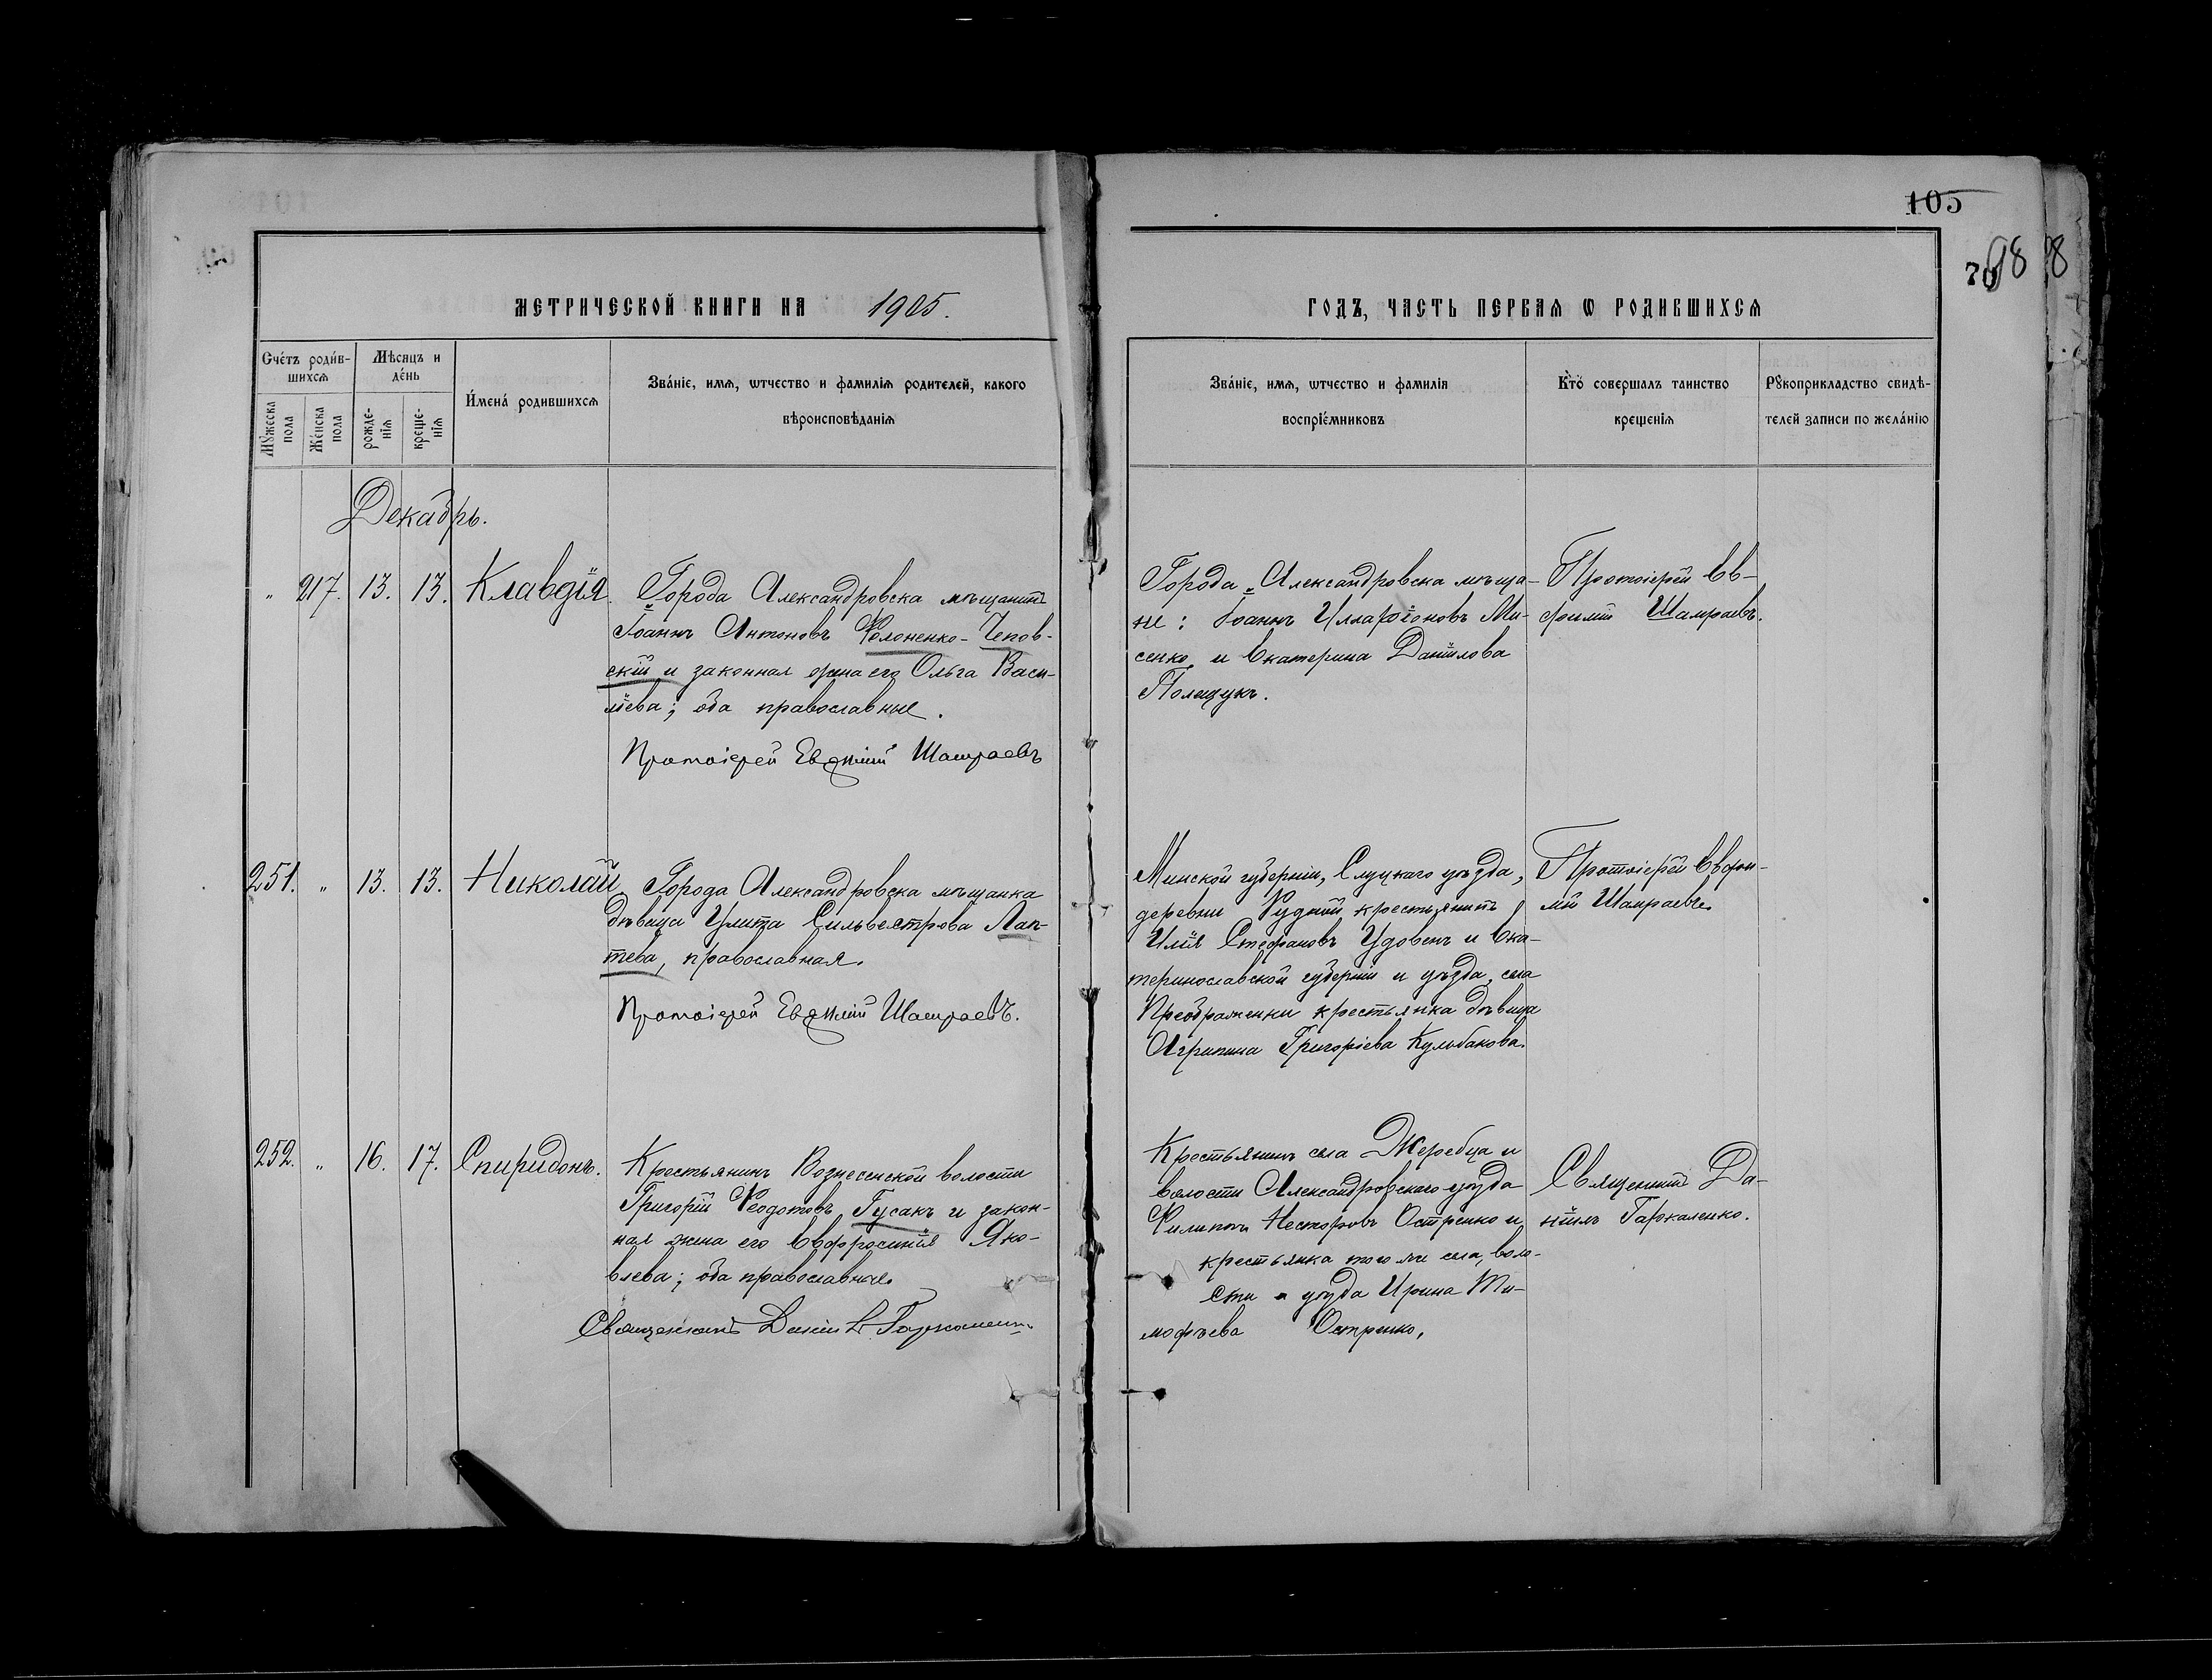 105
98
8
70
МЕТРИЧЕСКОЙ КНИГИ НА 1905.
ГОДЪ, ЧАСТЬ ПЕРВАЯ Ѡ РОДИВШИХСЯ
Счéтъ роди́в-
шихсѧ
Мѣсяцъ и
де́нь
Мꙋжеска
пола
Же́нска
пола
рожде-
нїѧ
креще-
нїѧ
И́мена́ родившихсѧ
Зва́нїе, имѧ, ѡтчество и фамилїѧ родителей, какого
вѣроисповѣданїѧ
Зва́нїе, имѧ, ѡтчество и фамилїя
воспрїе́мниковъ
Кто̀ совершалъ таинство
крещенїѧ
Рꙋкоприкладство свидѣ-
телей записи по жела́нїю
Декабрь.
" 217. 13. 13. Клавдія.
Города Александровска мѣщанинъ
Іоаннъ Антоновъ Фолоненко-Чепов-
скій и законная жена его Ольга Васи-
ліева; оба православные.
Протоіерей Евѳимій Шамраевъ
Города Александровска мѣща-
не: Іоаннъ Илларіоновъ Ми-
сенко и Екатерина Даніилова
Полещукъ.
Протоіерей Ев-
фимій Шамраевъ.
251. " 13. 13. Николай
Города Александровска мѣщанка
дѣвица Улита Сильвестрова Лап-
тева, православная.
Протоіерей Евѳимій Шамраевъ.
Минской губерніи, Слуцкаго уѣзда,
деревни Рудной крестьянинъ
Илія Стефановъ Удовенъ и Ека-
теринославской губерніи и уѣзда, села
Преображенки крестьянка дѣвица
Агрипина Григоріева Кульбакова.
Протоіерей Евфи-
мій Шамраевъ.
252. " 16. 17. Спиридонъ.
Крестьянинъ Вознесенской волости
Григорій Ѳеодотовъ Гусакъ и закон-
ная жена его Евфросинія Яко-
влева; оба православные.
Священникъ Даніилъ Гаркаленко
Крестьянинъ села Жеребца и
волости Александровскаго уѣзда
Филиппъ Несторовъ Остренко и
крестьянка того же села, воло-
сти и уѣзда Ирина Ти-
мофѣева Остренко,
Священникъ Да-
ніилъ Гаркаленко.